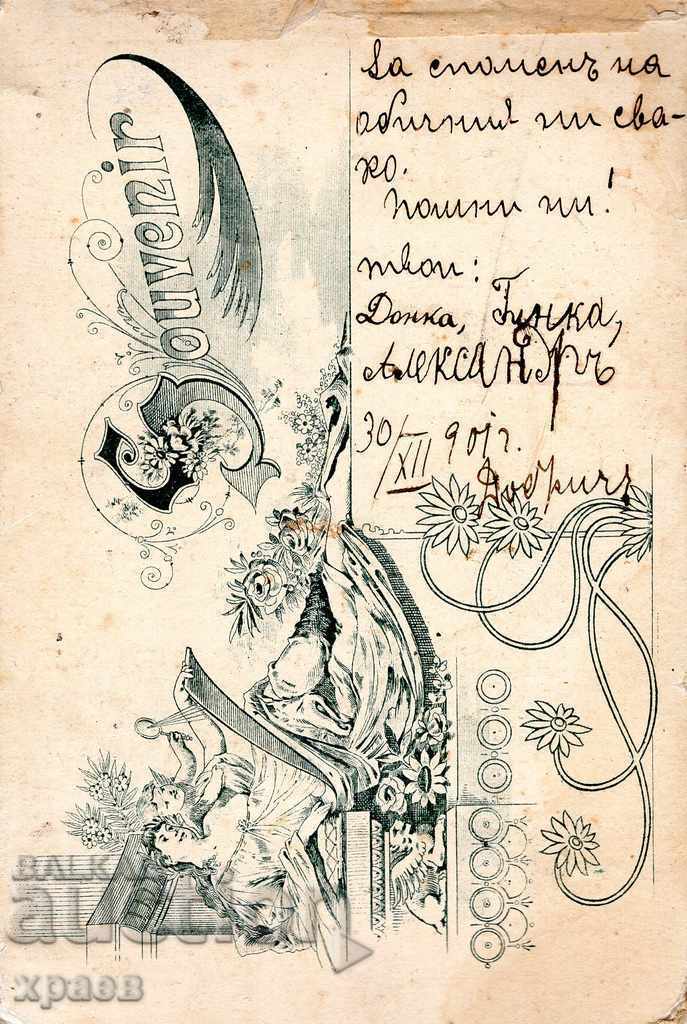 За споменъ на
обичния ни сва-
ко.
Помни ни!
твои:
Донка, Гинка,
Александръ
30/XII 901 г.
Добричъ
Souvenir
BALKAN
auction
храев